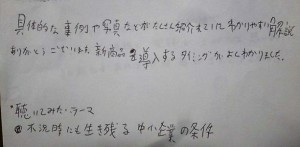 具体的な事例や写真などがたくさん紹介されていてわかりやすい解説
ありがとうございます。新商品を導入するタイミングがよくわかりました。
*聴いてみたいテーマ
◎不況時にも生き残る中小企業の条件